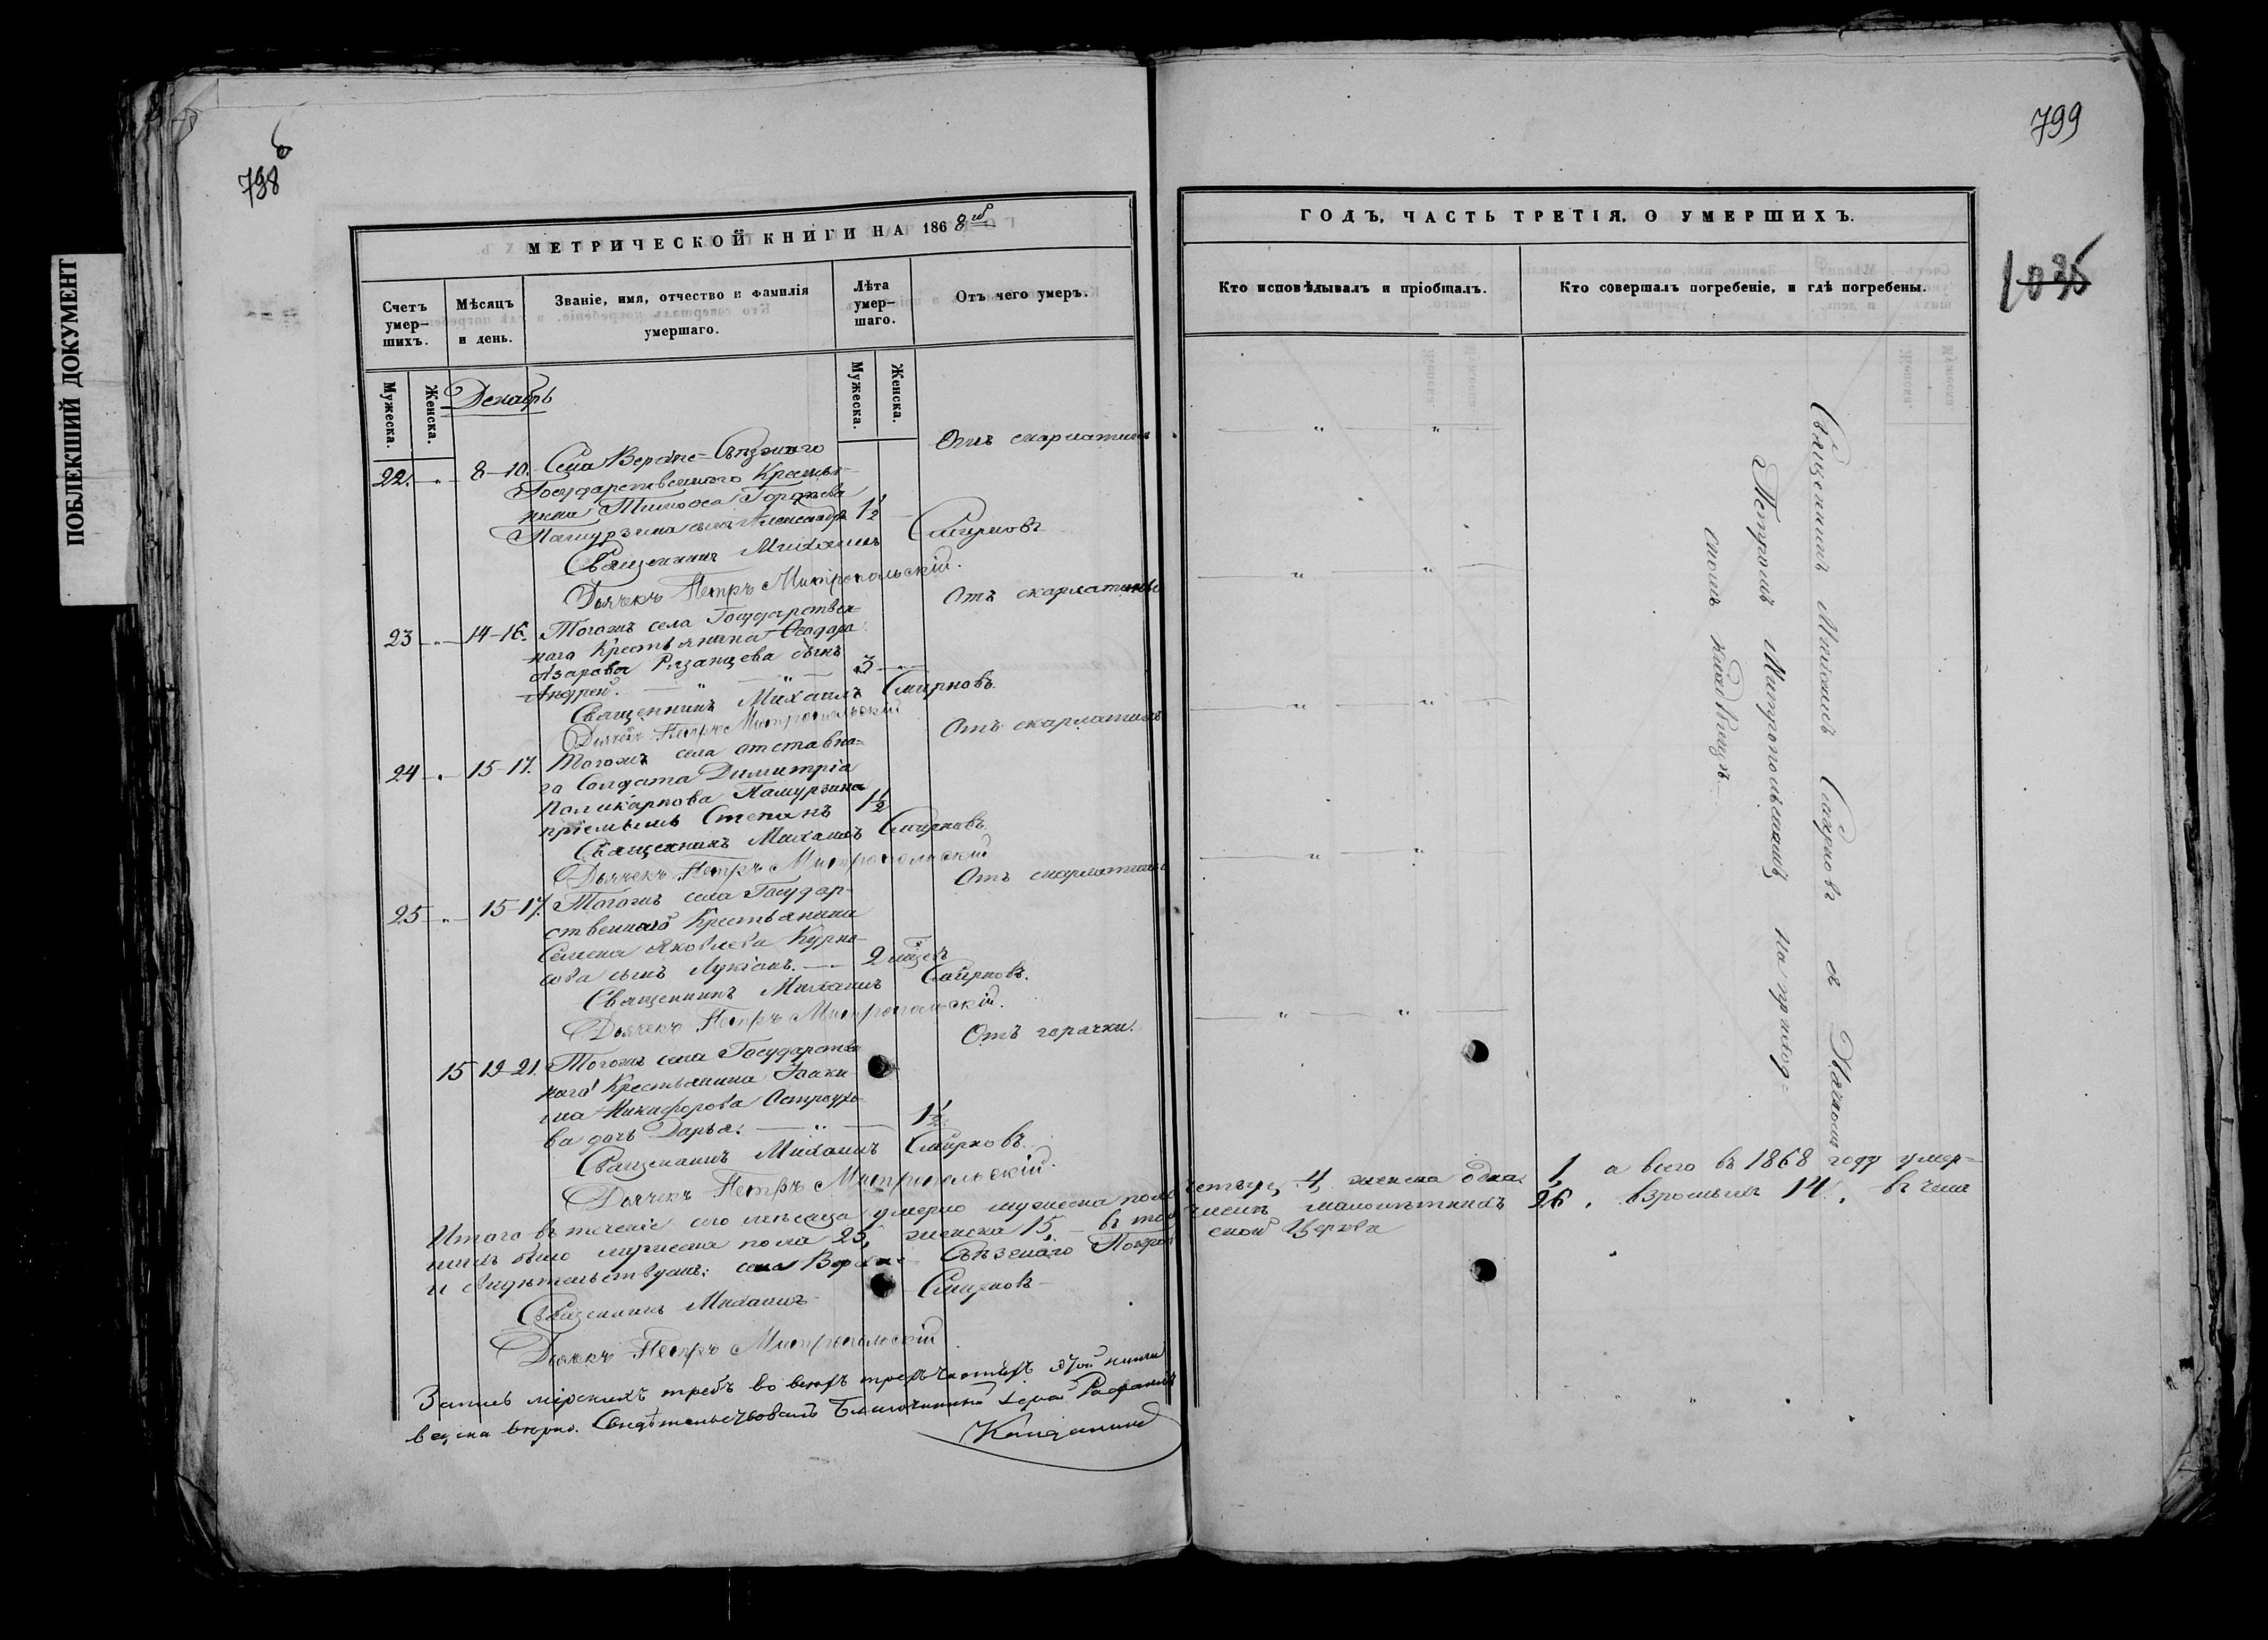 ПОБЛЕКШИЙ ДОКУМЕНТ
798
799
МЕТРИЧЕСКОЙ КНИГИ НА 1868
Счетъ умер-шихъ.
Мѣсяцъ и день.
Званіе, имя, отчество и фамилія умершаго.
Лѣта умер-шаго.
Отъ чего умеръ.
Мужеска.
Женска.
Мужеска.
Женска.
Декабрь
22. 8-10. Села Верхне-Съѣзжаго Отъ скарлатины
Государственнаго Крестья-
нина Гордѣева
сынъ Александръ 1 1/2
Священникъ Михаилъ Смирновъ
Дьячекъ Петръ Митропольскій.
23 14-16. Тогожъ села Государствен- Отъ скарлатины
наго Крестьянина Ѳеодора
Азарова Рязанцева сынъ
Андрей. 3
Священникъ Михаилъ Смирновъ.
Дьячекъ Петръ Митропольскій
24 15-17. Тогожъ села отставна- Отъ скарлатины
го Солдата Димитрія
Поликарпова
пріемышъ Степанъ 1 1/2
Священникъ Михаилъ Смирновъ.
Дьячекъ Петръ Митропольскій
25 15-17. Тогожъ села Государ- Отъ скарлатины
ственнаго Крестьянина
Семена Яковлева Курно-
сова сынъ Лукіанъ. 2
Священникъ Михаилъ Смирновъ.
Дьячекъ Петръ Митропольскій.
15 19-21. Тогожъ села Государствен Отъ горячки.
наго Крестьянина Іоаки-
ма Никифорова Остроухо-
ва дочь Дарья. 1 1/2
Священникъ Михаилъ Смирновъ.
Дьячекъ Петръ Митропольскій.
Итого въ теченіе сего мѣсяца умерло мужеска пола четыре, 4, женска одна 1, а всего въ 1868 году умер-
шихъ было мужеска пола 25, женска 15, въ томъ числѣ малолѣтнихъ 26, взрослыхъ 14, въ чемъ
и свидѣтельствуемъ: села Верхне-Съѣзжаго Покровской Церкви
Священникъ Михаилъ Смирновъ
Дьячекъ Петръ Митропольскій
Запись мірскихъ требъ во всѣхъ трехъ частяхъ этой книги
ведена вѣрно. Свидѣтельствовалъ Благочинный
ГОДЪ, ЧАСТЬ ТРЕТІЯ, О УМЕРШИХЪ.
Кто исповѣдывалъ и пріобщалъ.
Кто совершалъ погребеніе, и гдѣ погребены.
Священникъ Михаилъ Смирновъ съ Дьячкомъ
Петромъ Митропольскимъ на приход-
скомъ кладбищѣ.